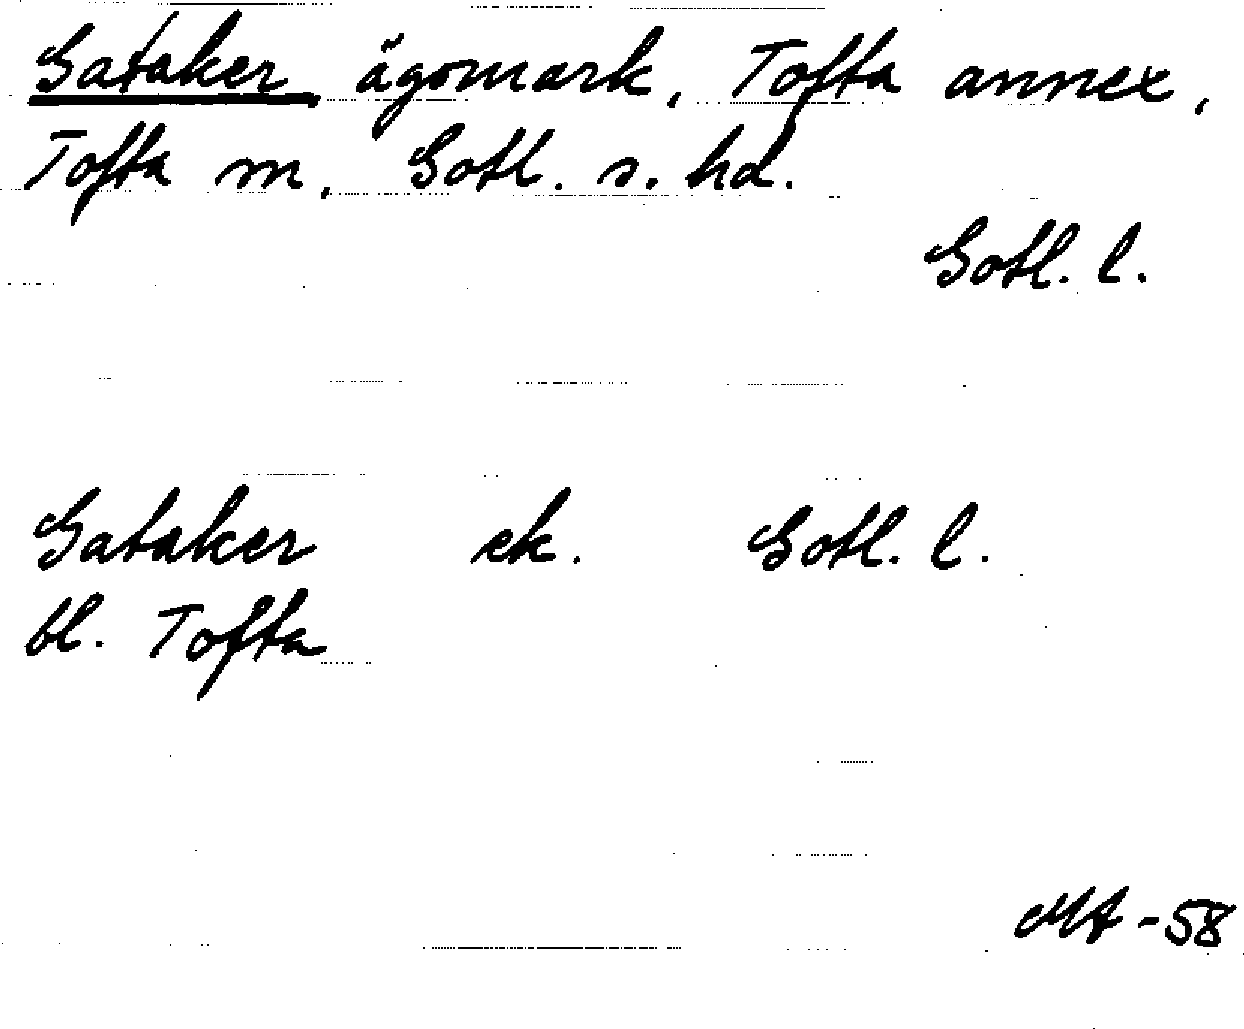 Gataker, ägomark, Tofta annex,
Tofta sn, Gotl. s. hd.
Gotl. l.
Gataker ek. Gotl. l.
bl. Tofta
MA -58